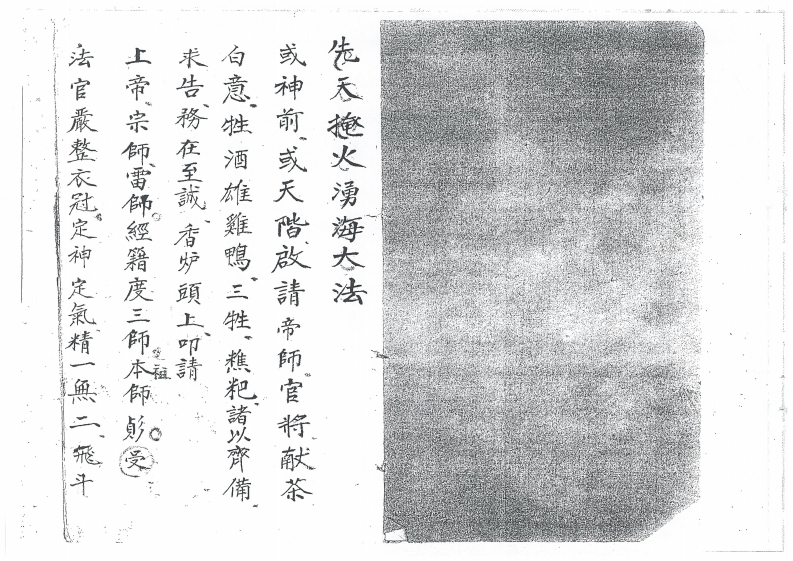 先天掩火湧海大法
或神前、或天階啟請帝師官將献茶
白意、牲酒雄雞鴨、三牲、樵粑、諸以齊備
求告、務在至誠、香炉頭上、叩請
上帝、宗師、雷師。經籍度三師本師
祖
受
法官嚴整衣冠。定神定氣、精一無二、飛斗